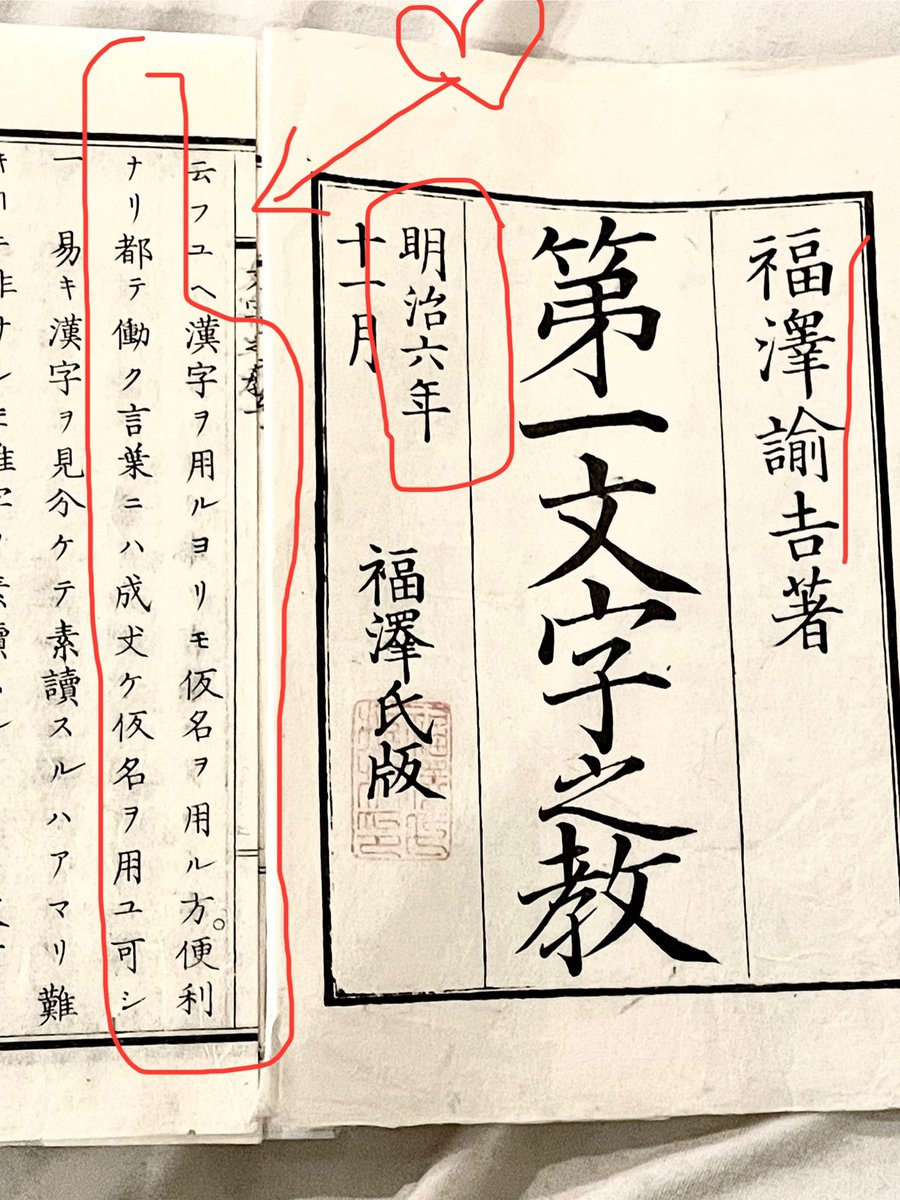 福澤諭吉著
第一文字之教
明治六年
十一月
福澤氏版
云フユヘ漢字ヲ用ルヨリモ仮名ヲ用ル方便利
ナリ都テ働ク言葉ニハ成丈ケ仮名ヲ用ユ可シ
一 易キ漢字ヲ見分ケテ素讀スルハアマリ難